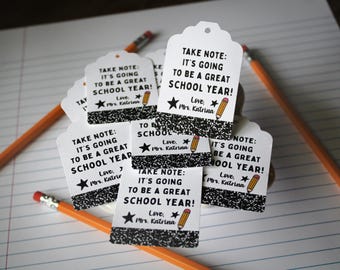 TAKE NOTE:
IT'S GOING
TO BE A GREAT
SCHOOL YEAR!
Love,
Mrs. Katrina
TAKE NOTE:
IT'S GOING
TO BE A GREAT
SCHOOL YEAR!
Love,
Mrs. Katrina
TAKE NOTE:
IT'S GOING
TO BE A GREAT
SCHOOL YEAR!
Love,
Mrs. Katrina
Love,
Mrs. Katrina
TAKE NOTE:
IT'S GOING
TO BE A GREAT
SCHOOL YEAR!
Love,
Mrs. Katrina
TAKE NOTE:
IT'S GOING
TO BE A GREAT
SCHOOL YEAR!
Love,
Mrs. Katrina